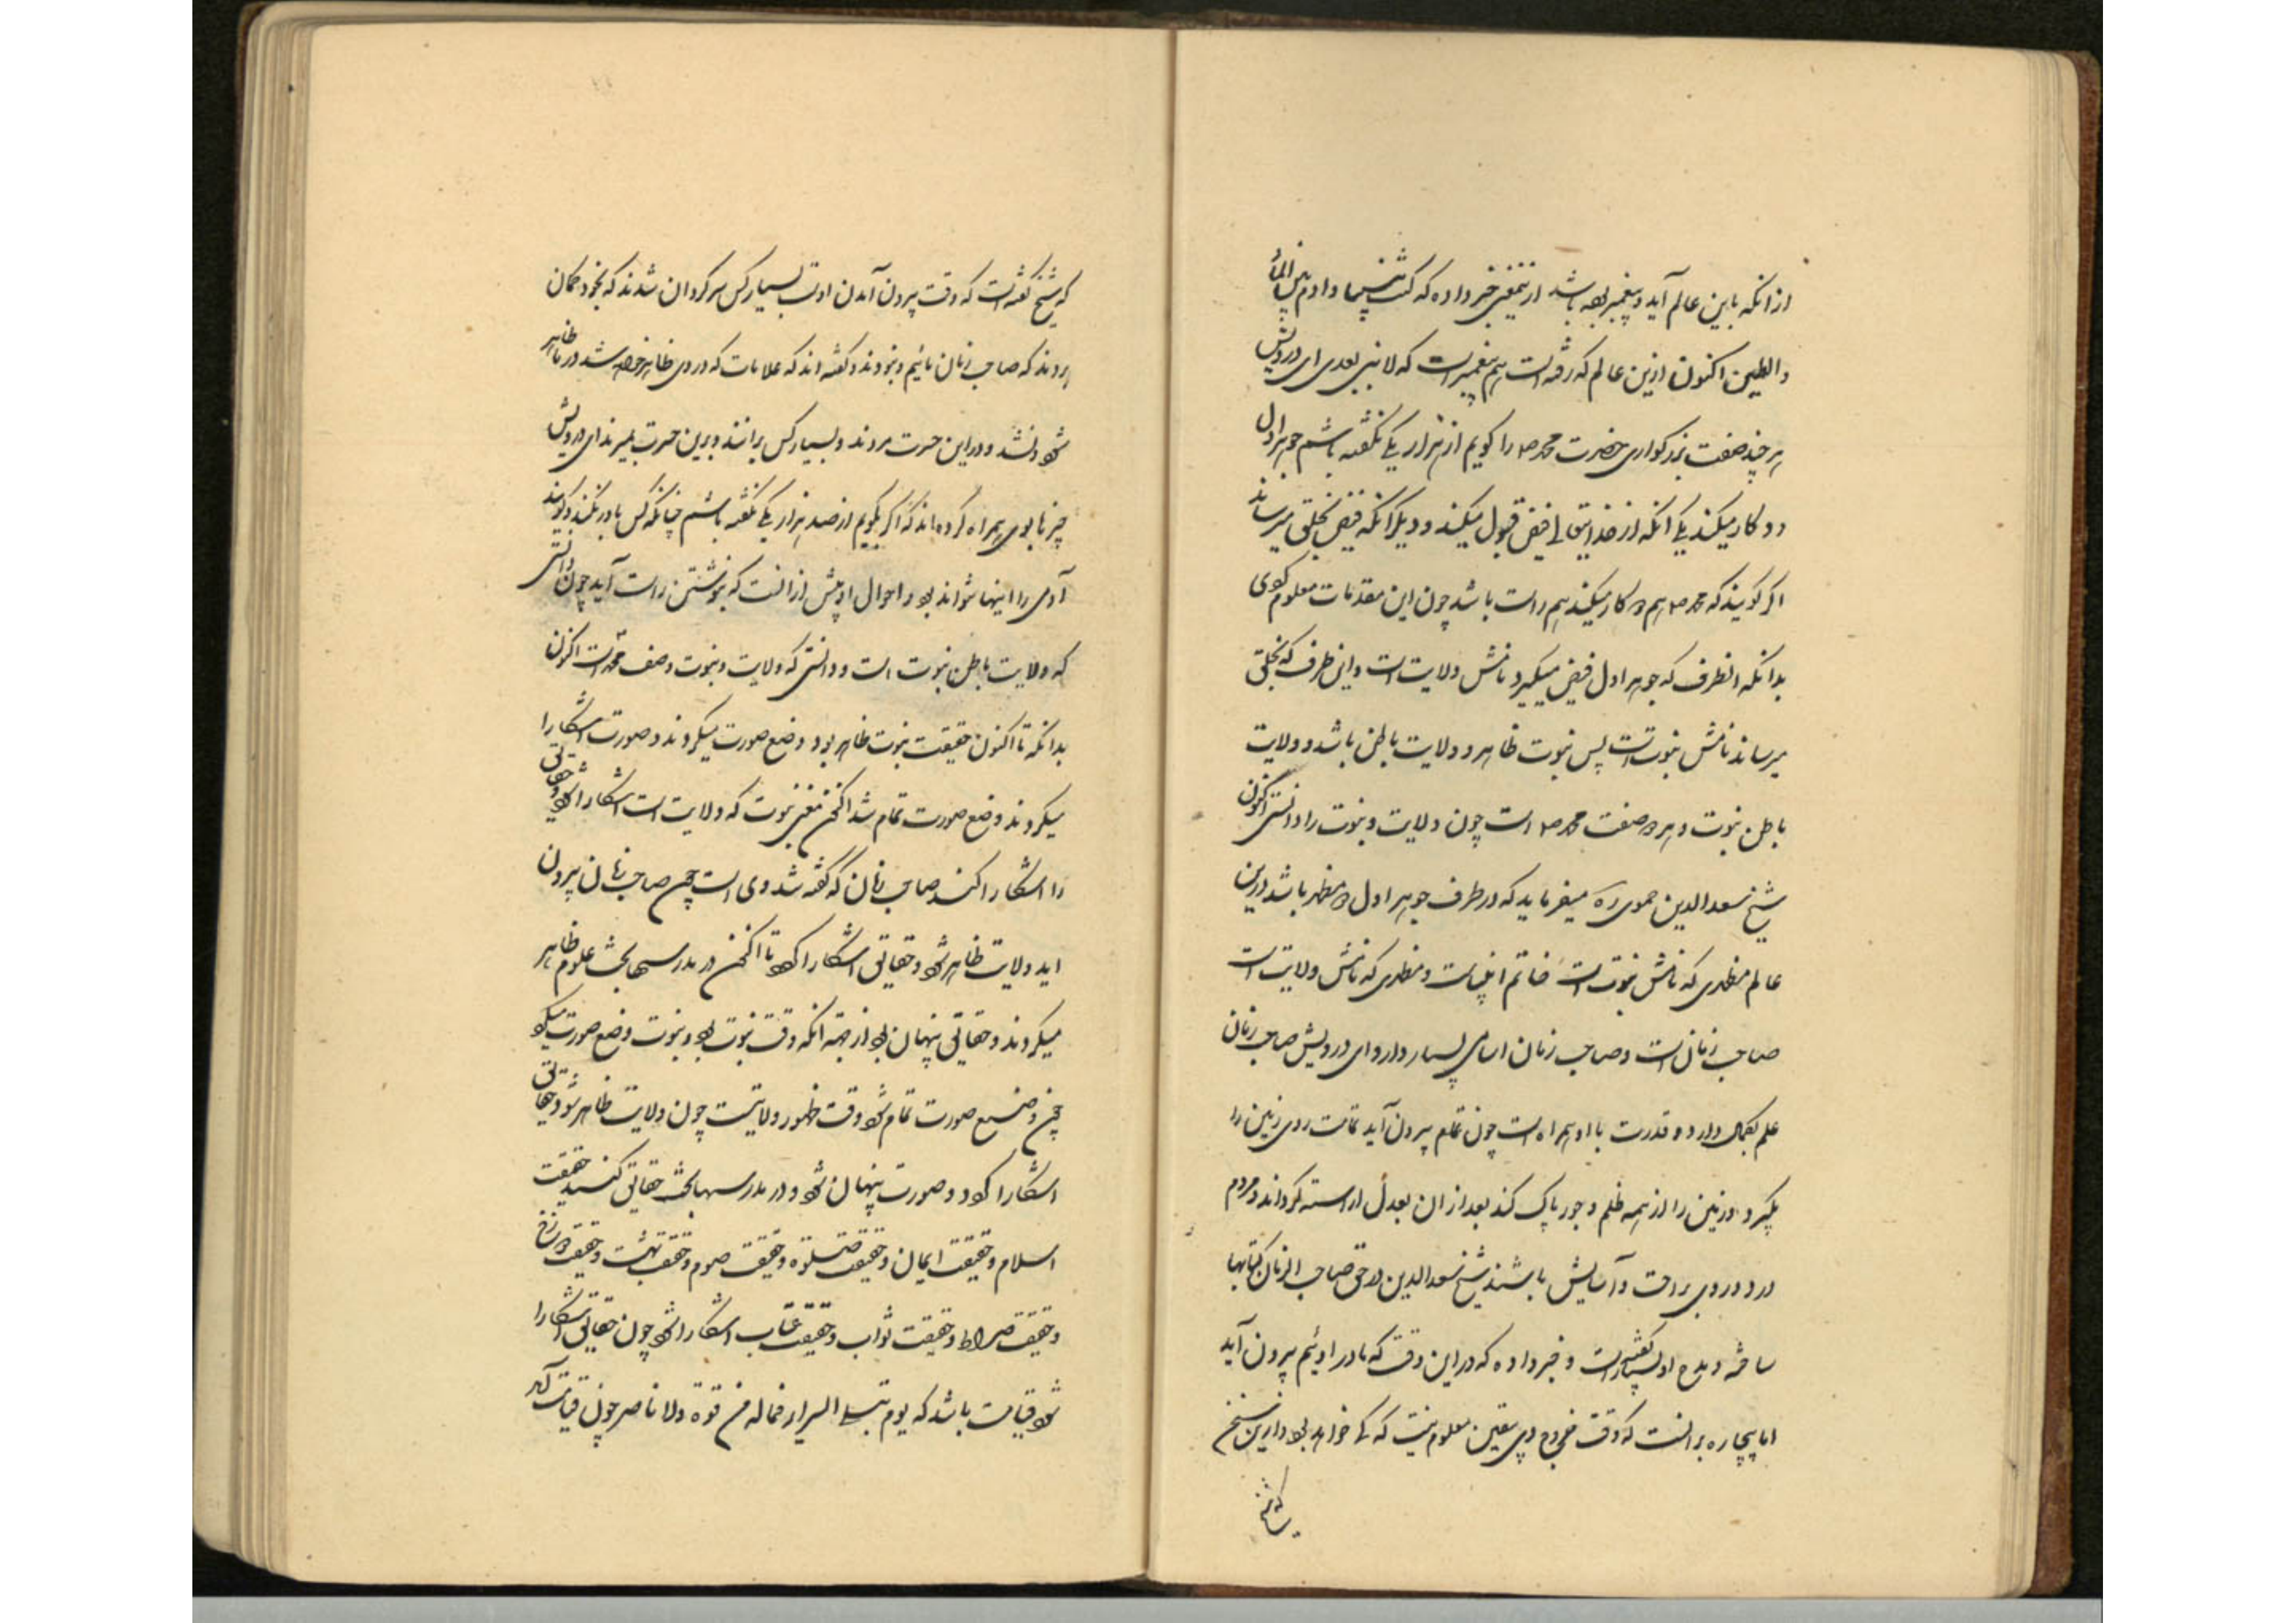 ازانکه باین عالم آید و پیغمبر بوده باشد ازینمعنی خبر داده که کنت نبیا و ادم بین الماء
والطین اکنون ازین عالم که رفته است هم پیغمبر است که لا نبی بعدی ای درویش
هر چند صفت بزرکواری حضرت محمد ص را کویم از هزار یکی نکفته باشم جوهر اول
دو کار میکند یکی انکه از خدایتعالی فیض قبول میکند و دیکر انکه فیض بخلق میرساند
اکر کویند که محمد ص هم دو کار میکند هم راست باشد چون این مقدمات معلوم کردی
بدانکه انطرف که جوهر اول فیض میکیرد نامش ولایت است و این طرف که بخلق
میرساند نامش نبوت است پس نبوت ظاهر و ولایت باطن باشد و ولایت
باطن نبوت و هر دو صفت محمد ص است چون ولایت و نبوت را دانستی اکنون
شیخ سعدالدین حموی ره میفرماید که در طرف جوهر اول دو مظهر باشد درین
عالم مظهری که نامش نبوت است خاتم انبیاست و مظهری که نامش ولایت است
صاحب زمان است و صاحب زمان اسامی بسیار دارد ای درویش صاحب زمان
علم بکمال دارد و قدرت با او همراه است چون تمام بیرون آید تمامت روی زمین را
بکیرد و زمین را از همه ظلم و جور پاک کند بعد از ان بعدل اراسته کرداند و مردم
در دور وی براحت و آسایش باشند شیخ سعدالدین در حق صاحب الزمان کتابها
ساخته و مدح او بسیار کفته است و خبر داده که در این وقت که ما در اوئیم بیرون آید
اما بیچاره برانست که وقت خروج وی بیقین معلوم نیست که کی خواهد بود و ازین سخن
که شیخ
که شیخ کفته است که وقت بیرون آمدن اوست بسیار کس سرکردان شدند که بخود کمان
بردند که صاحب زمان مائیم و نبودند و کفته اند که علامات که در وی ظاهر خواهد شد در ما ظاهر
شود نشد و در این حسرت مردند و بسیار کس برانند و برین حسرت بمیرند ای درویش
چیزها بوی همراه کرده اند که اکر بکویم از صد هزار یکی نکفته باشم چنانکه کس باور نکند و کویند
آدمی را اینها نتواند بود و احوال او بیش از انست که بنوشتن راست آید چون دانستی
که ولایت باطن نبوت است و دانستی که ولایت و نبوت وصف محمد است اکنون
بدانکه تا اکنون حقیقت نبوت ظاهر بود وضع صورت میکردند و صورت اشکارا
میکردند وضع صورت تمام شد اکنون مغز نبوت که ولایت است اشکارا شود و حقائق
را اشکارا کند صاحب زمان که کفته شد وی است چون صاحب زمان بیرون
اید ولایت ظاهر شود و حقائق اشکارا کردد تا اکنون در مدرسها بحث علوم ظاهر
میکردند و حقائق پنهان بود از جهة انکه وقت نبوت بود و نبوت وضع صورت میکرد
چون وضع صورت تمام شود وقت ظهور ولایتست چون ولایت ظاهر شود و حقائق
اشکارا کردد و صورت پنهان شود و در مدرسها بحث حقائق کنند حقیقت
اسلام و حقیقت ایمان و حقیقت صلوة و حقیقت صوم و حقیقت بهشت و حقیقت دوزخ
و حقیقت صراط و حقیقت ثواب و حقیقت عقاب اشکارا شود چون حقائق اشکارا
شود قیامت باشد که یوم تبلی السرایر فماله من قوة ولا ناصر چون قیامت آید